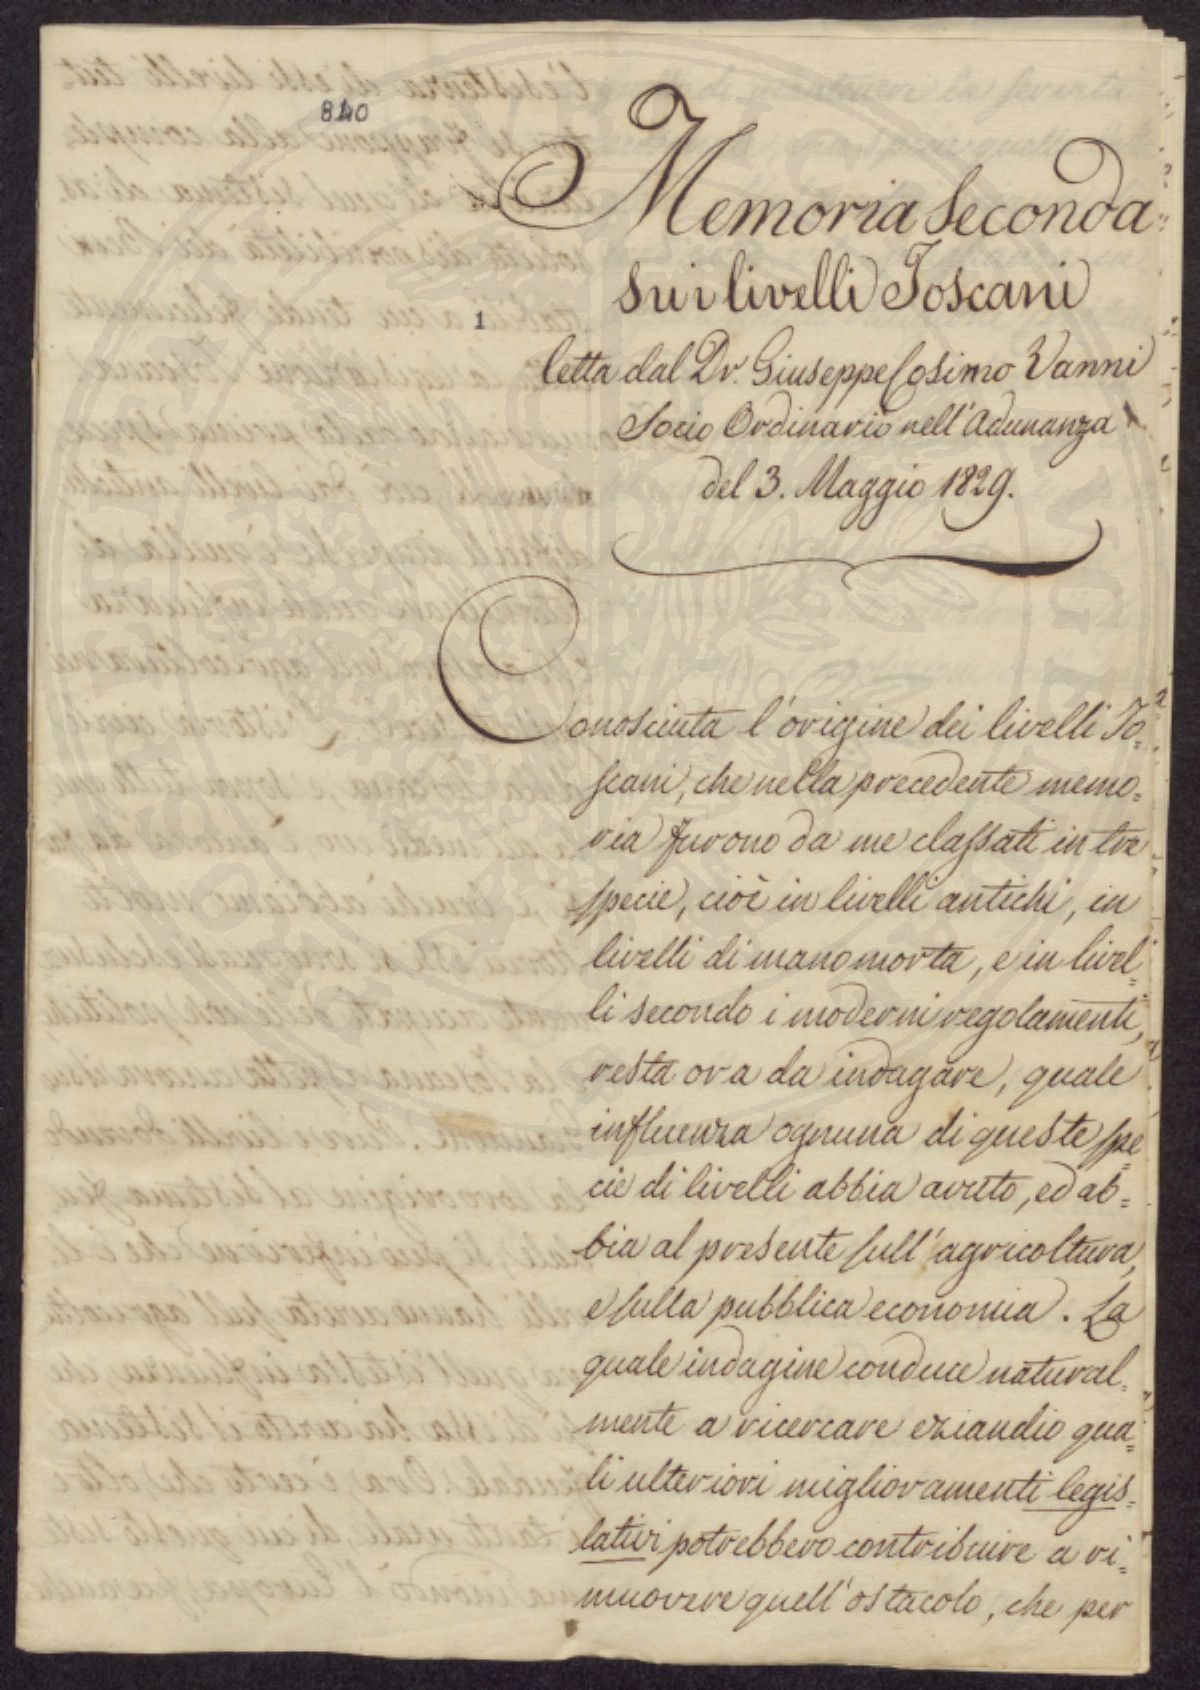 840
Memoria Seconda
sui livelli Toscani
1
letta dal Dr. Giuseppe Cosimo Vanni
Socio Ordinario nell'Adunanza
del 3. Maggio 1829.
Conosciuta l'origine dei livelli To=
scani, che nella precedente memo=
ria furono da me classati in tre
specie, cioè in livelli antichi, in
livelli di manomorta, e in livel=
li secondo i moderni regolamenti,
resta ora da indagare, quale
influenza ognuna di queste spe=
cie di livelli abbia avuto, ed ab=
bia al presente sull'agricoltura,
e sulla pubblica economia. La
quale indagine conduce natural=
mente a ricercare eziandio qua=
li ulteriori miglioramenti legis=
lativi potrebbero contribuire a ri=
muovere quell'ostacolo, che per